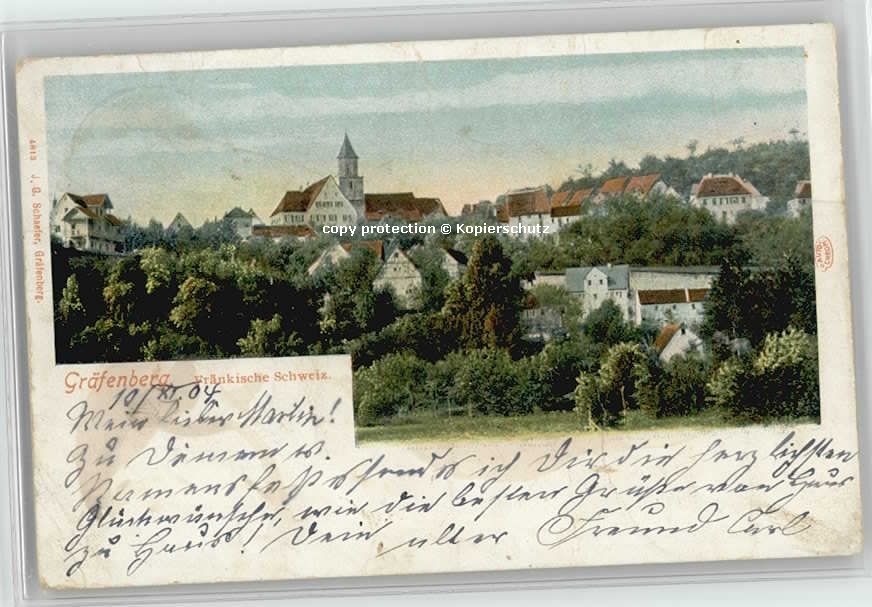 4813 J. G. Schaefer, Gräfenberg.
copy protection © Kopierschutz
AUTO CHROM
Gräfenberg. Fränkische Schweiz.
10/XI. 04
Mein lieber Martin!
Zu Deinem w.
Namensfeste sende ich Dir die herzlichsten
Glückwünsche, wie die besten Grüße von Haus
zu Haus! Dein alter Freund Carl